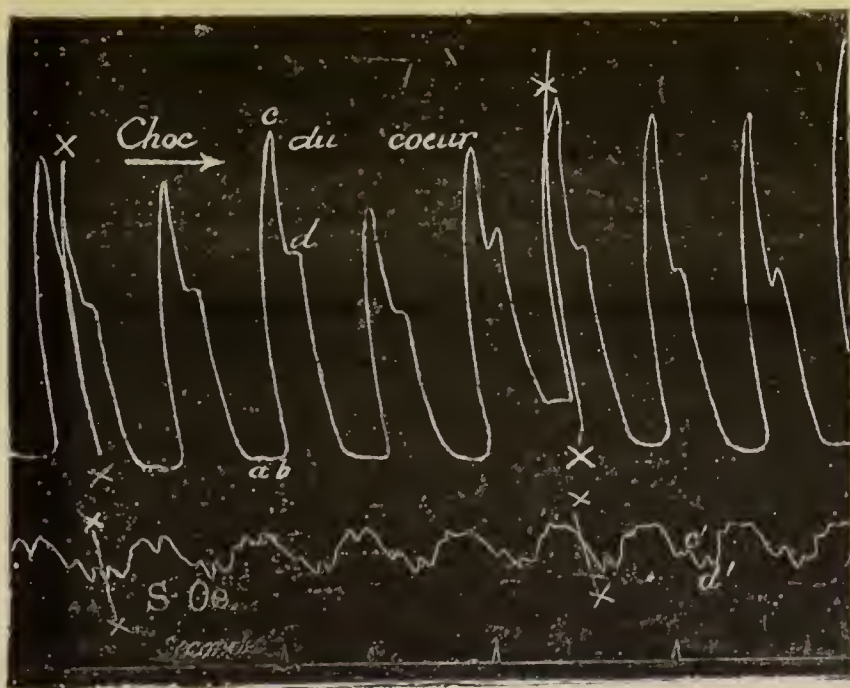 Choc c du coeur
d
a b
c'
d'
S. Oe
Secondes